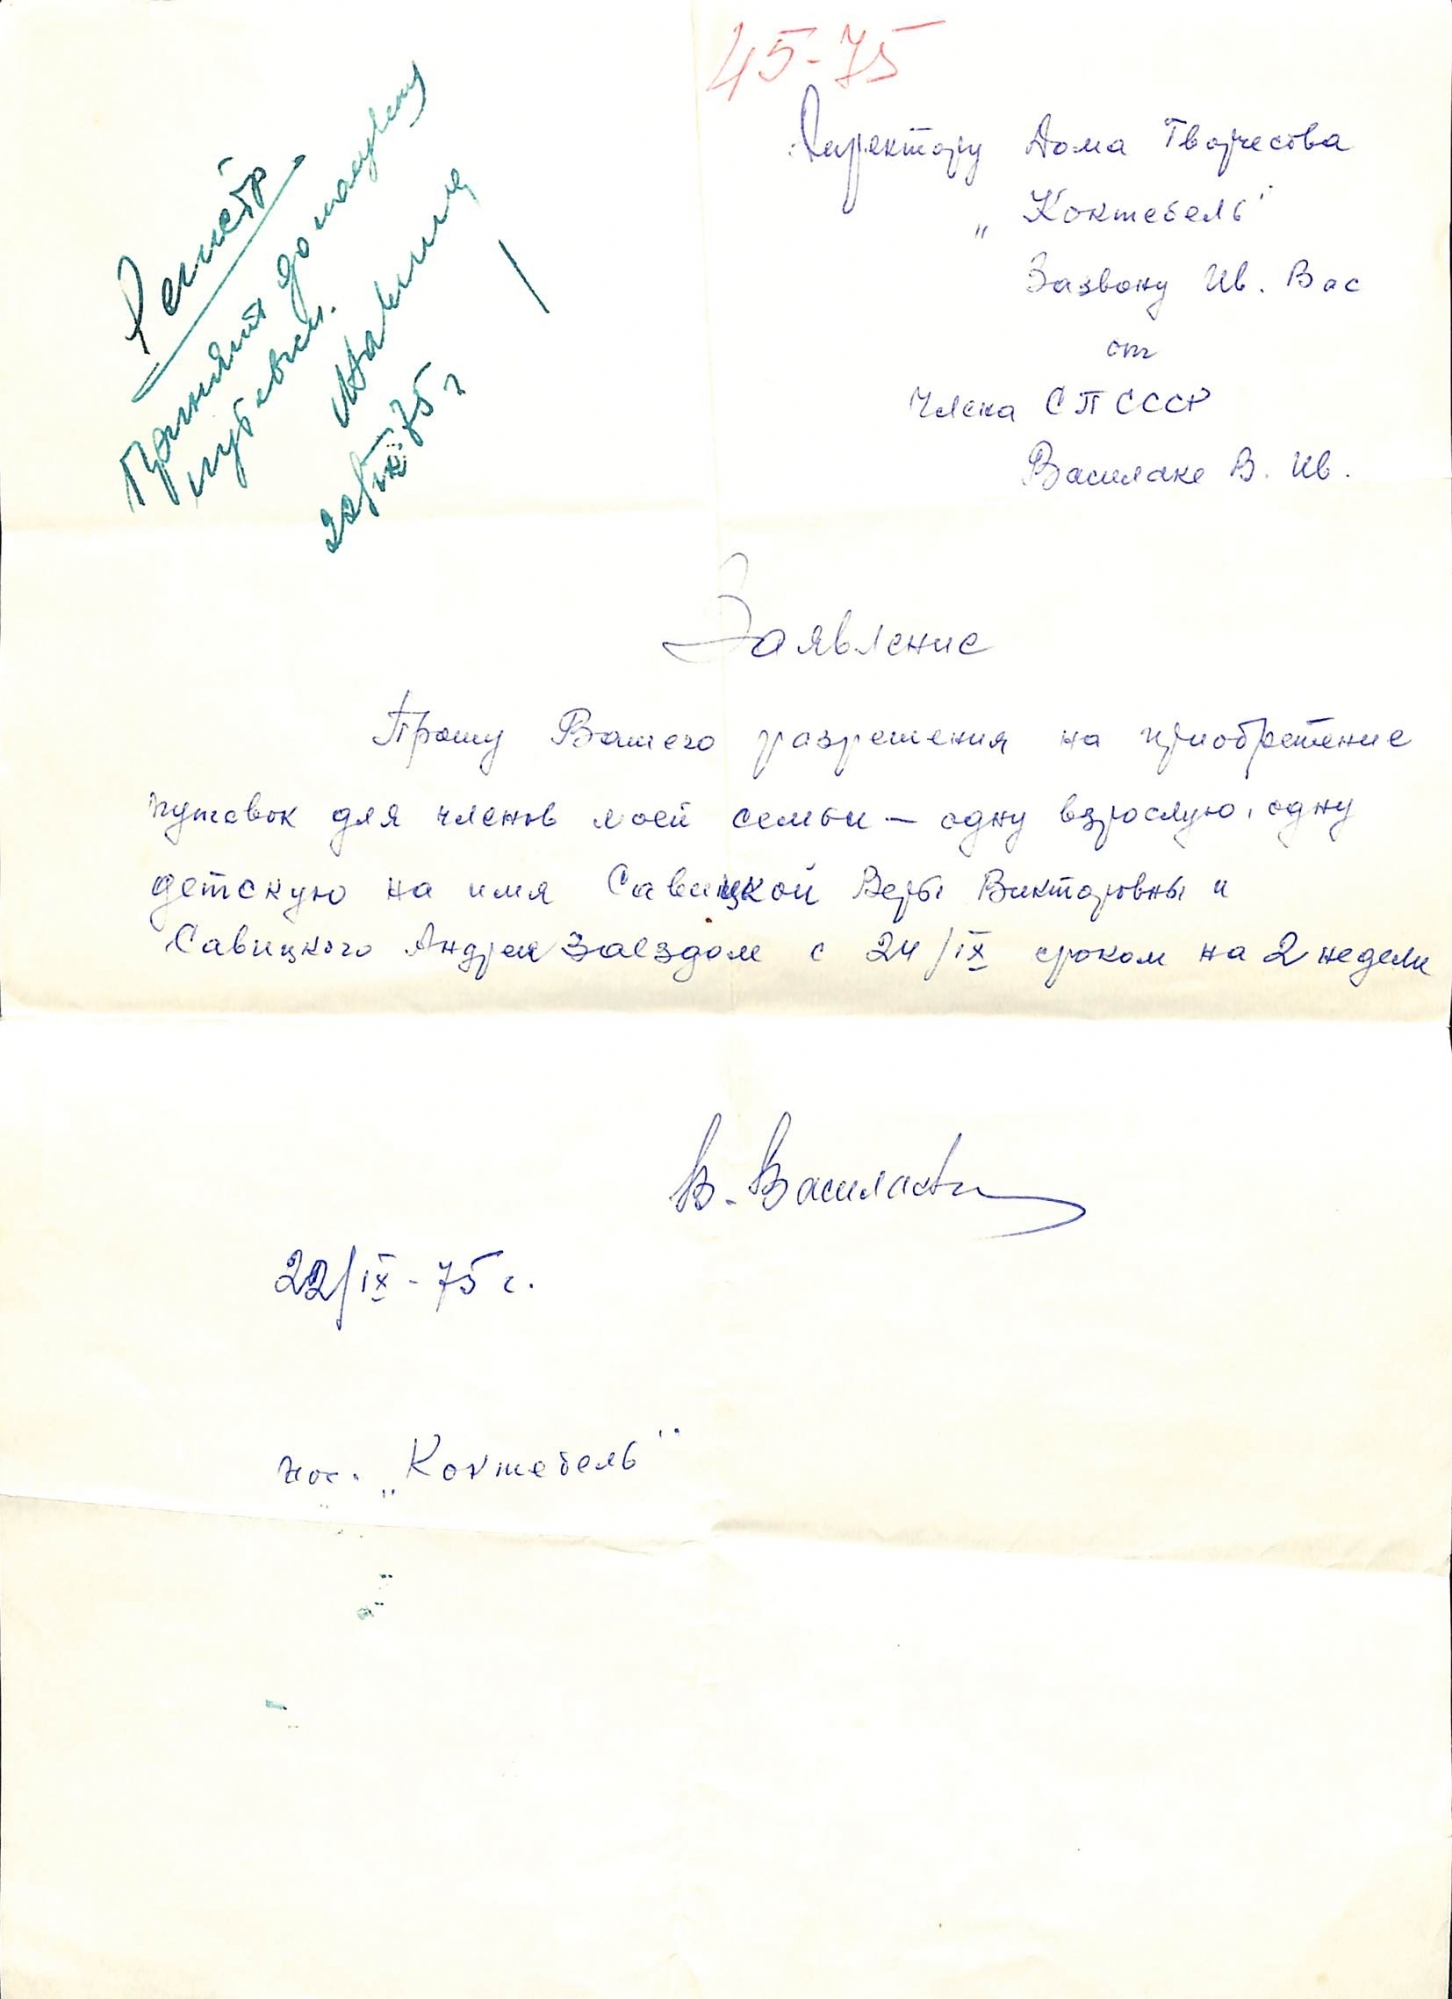 45-75
Директору Дома Творчества
„Коктебель"
Зазвону Ив. Вас
от
Члена СП СССР
Василаке В. Ив.
Принять до
путевки.
22/IX 75 г
Заявление
Прошу Вашего разрешения на приобретение
путевок для членов моей семьи — одну взрослую, одну
детскую на имя Савицкой Веры Викторовны и
Савицкого Андрея заездом с 24/IX сроком на 2 недели
В. Василаке
22/IX - 75 г.
пос. „Коктебель"